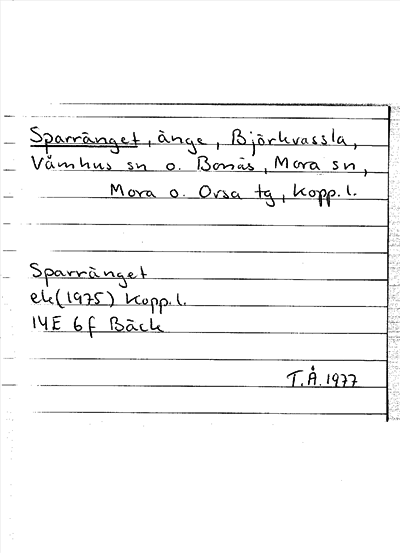 Sparränget, änge, Björkvassla,
Våmhus sn o. Bonäs, Mora sn,
Mora o. Orsa tg, Kopp. l.
Sparränget
ek (1975) Kopp. l.
14E 6f Bäck
T.Å. 1977